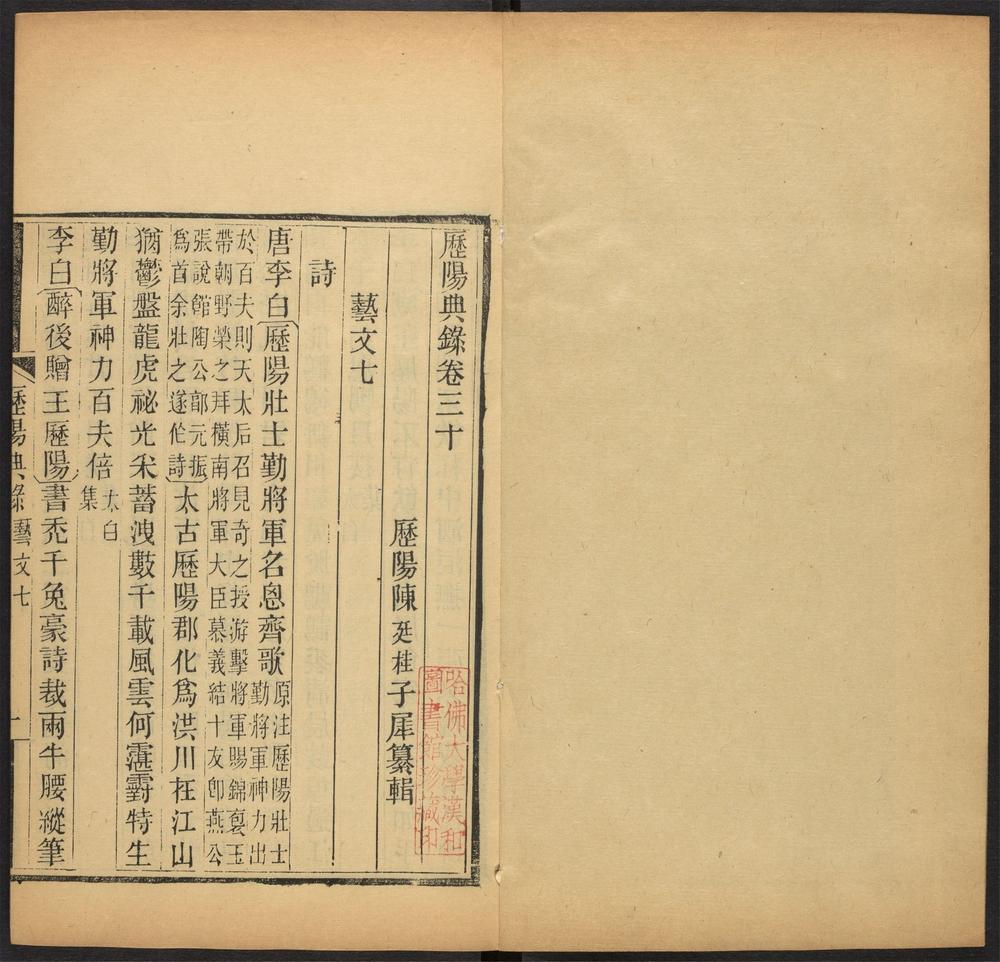 歷陽典錄卷三十
歷陽陳廷桂子犀纂輯
藝文七
詩
唐李白歷陽壯士勤將軍名思齊歌原注歷陽壯士勤將軍神力出
於百夫則天太后召見奇之授游擊將軍賜錦袍玉
帶朝野榮之拜橫南將軍大臣慕義結十友即燕公
張說館陶公郭元振
為首余壯之遂作詩太古歷陽郡化為洪川在江山
猶鬱盤龍虎祕光采蓄洩數千載風雲何霮䨴特生
勤將軍神力百夫倍太白集
李白醉後贈王歷陽書禿千兔豪詩裁兩牛腰縱筆
歷陽典錄 藝文七 一
哈佛大學漢和
圖書館珍藏印